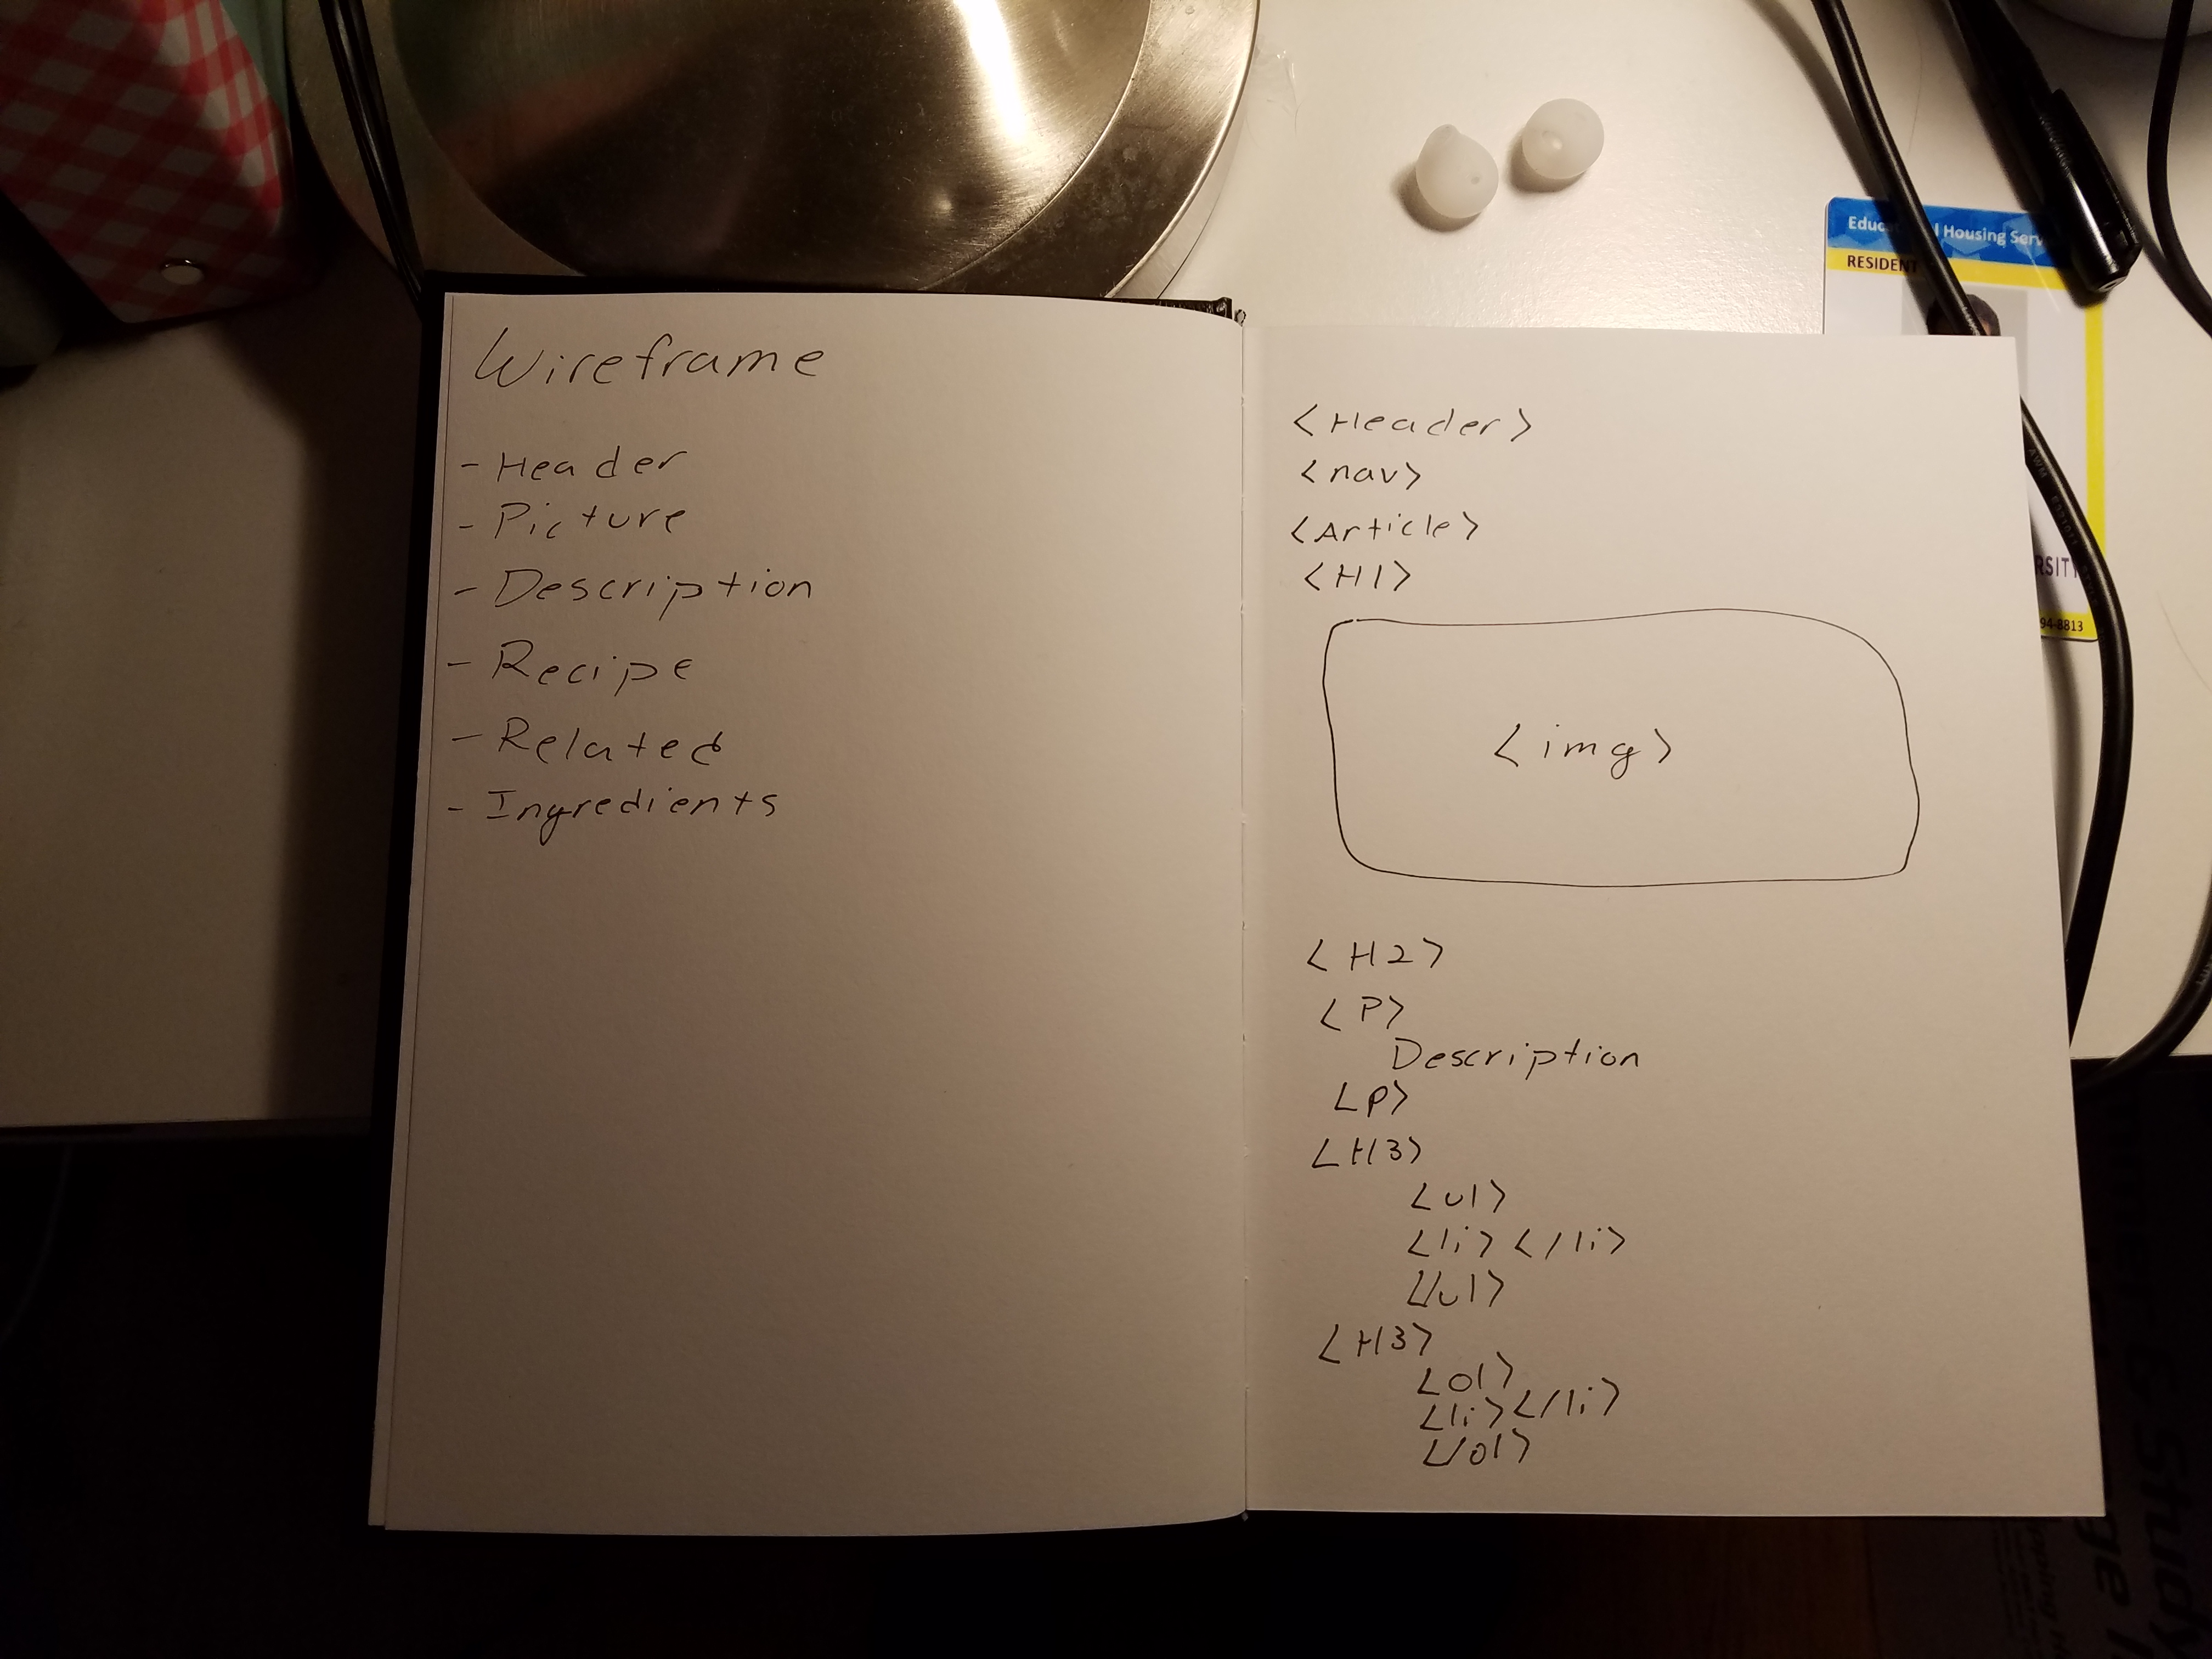 Wireframe
- Header
- Picture
- Description
- Recipe
- Related
- Ingredients
<Header>
<nav>
<Article>
<H1>
<img>
<H2>
<P>
Description
<p>
<H3>
<ul>
<li> </li>
</ul>
<H3>
<ol>
<li></li>
</ol>
Housing Serv
RESIDENT
RSITY
94-8813
AWM